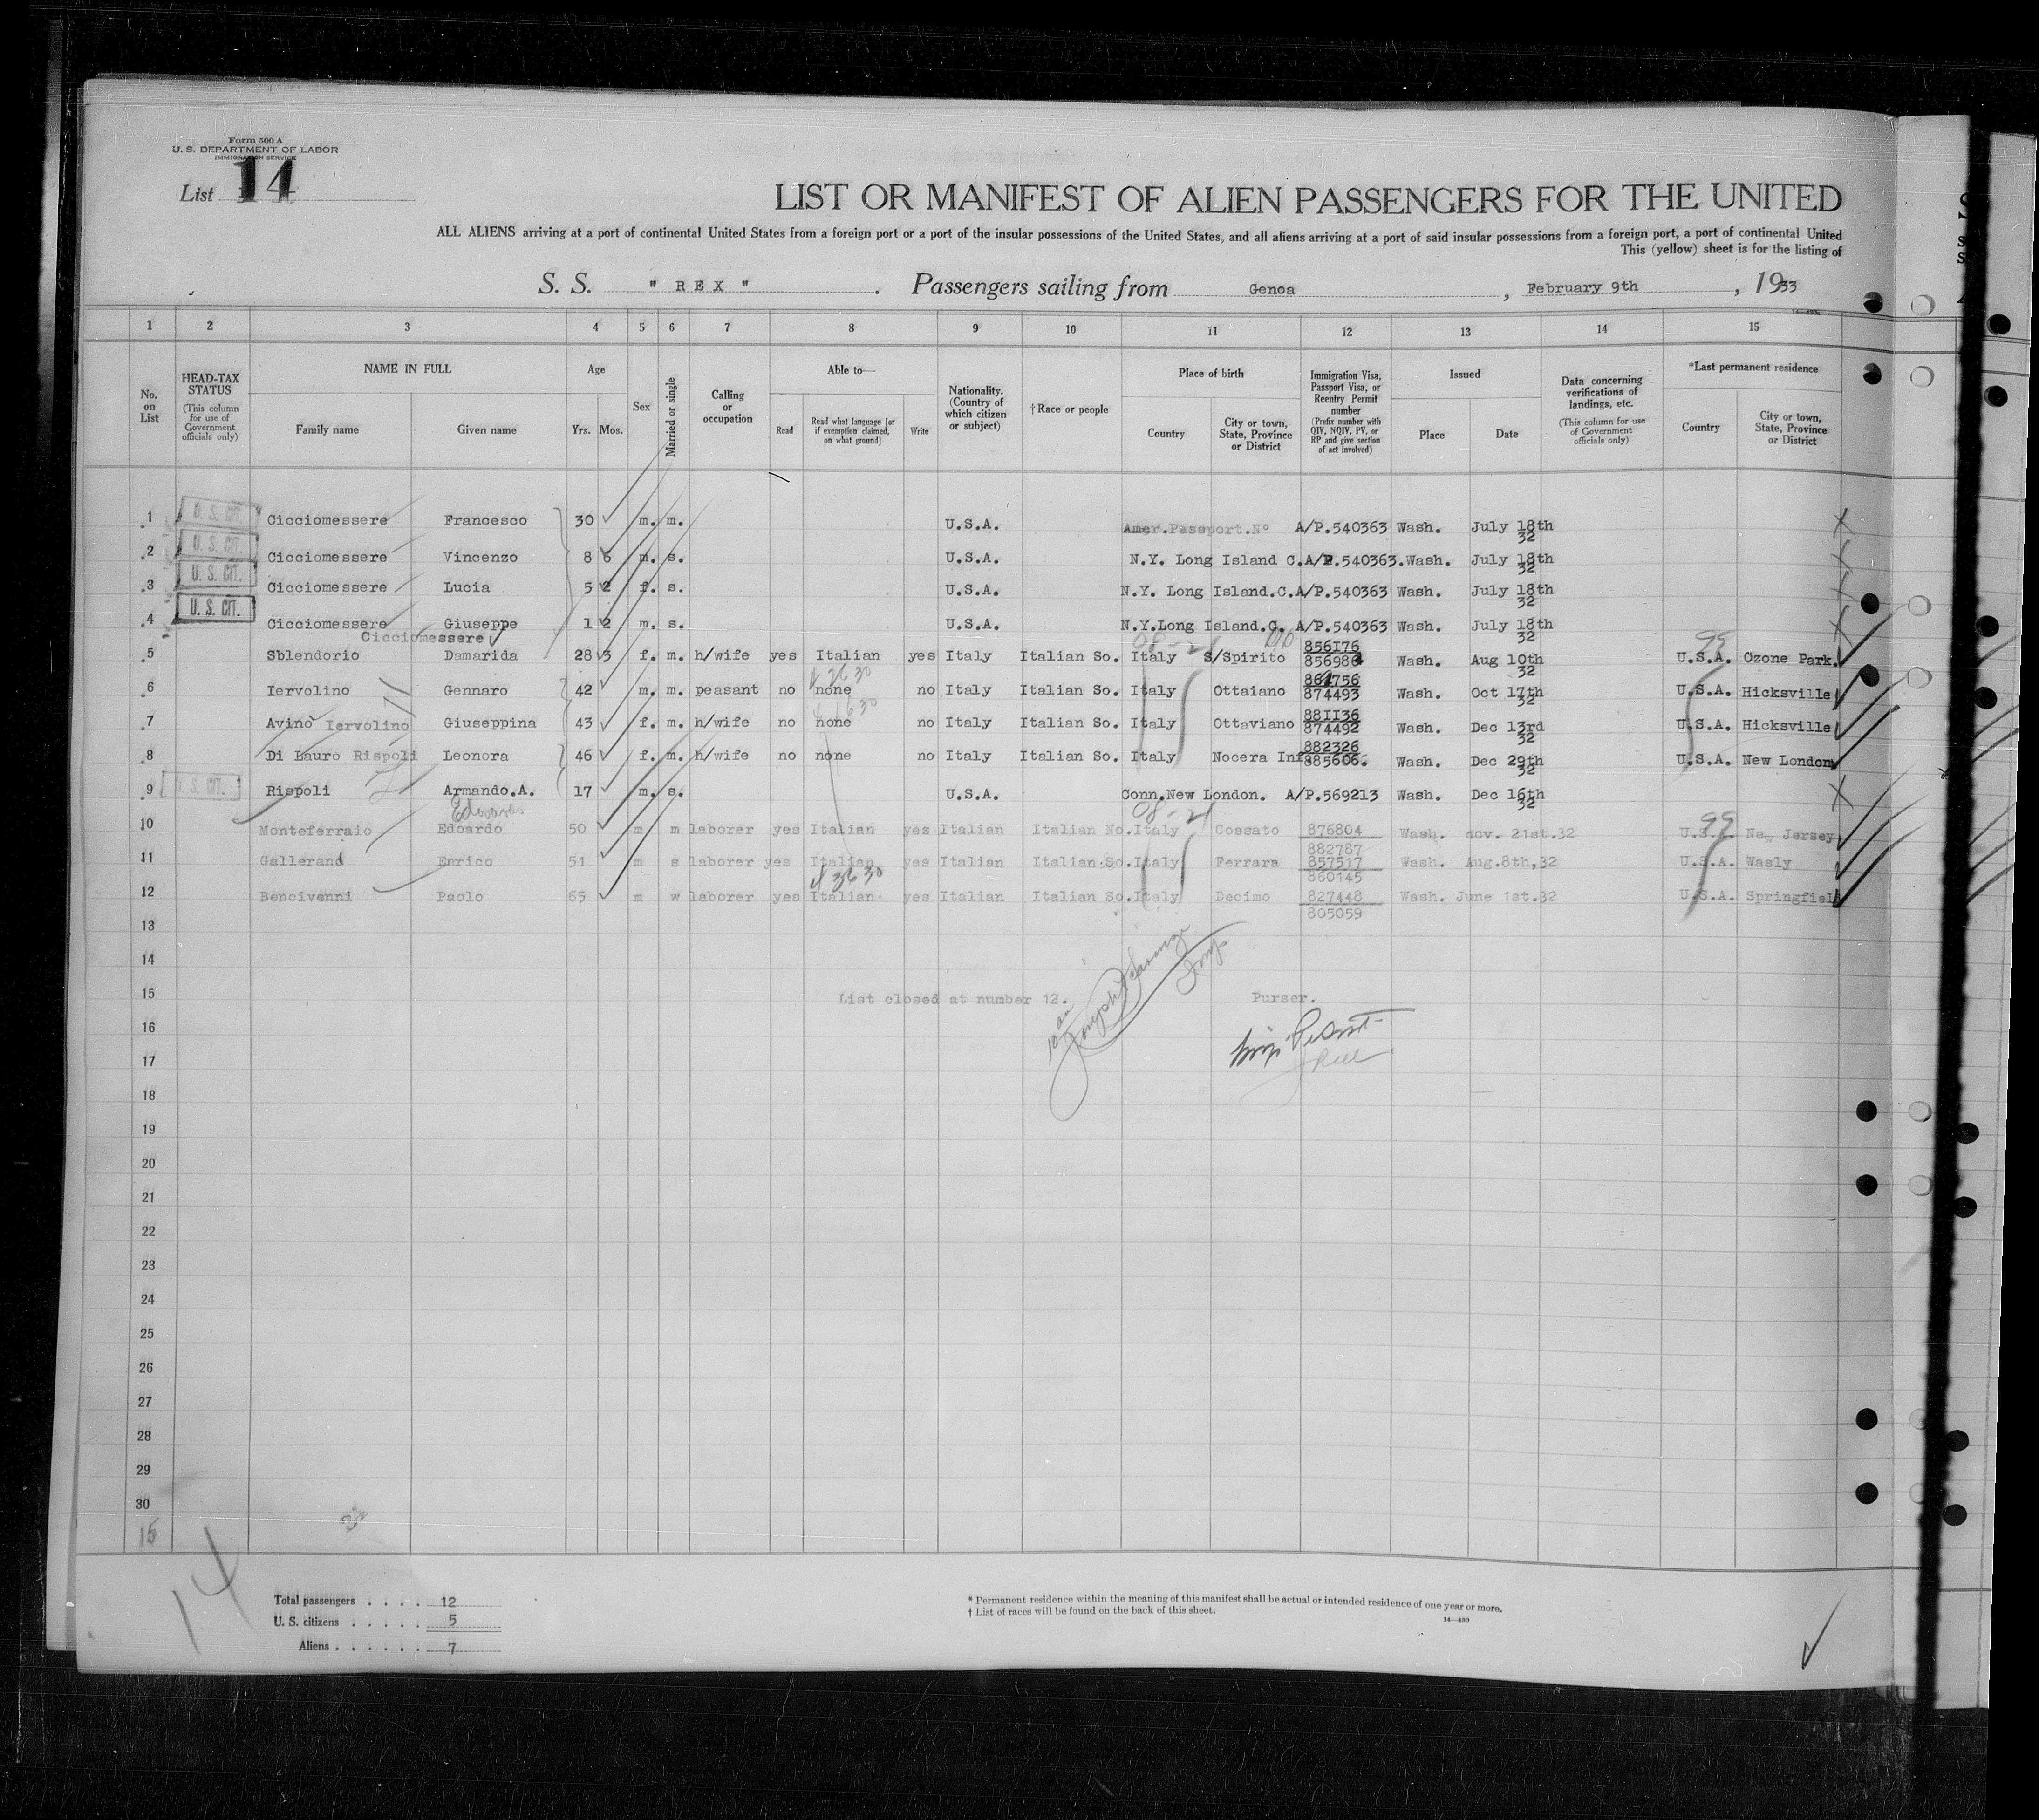 Form 500 A
U. S. DEPARTMENT OF LABOR
IMMIGRATION SERVICE
List 14
LIST OR MANIFEST OF ALIEN PASSENGERS FOR THE UNITED
ALL ALIENS arriving at a port of continental United States from a foreign port or a port of the insular possessions of the United States, and all aliens arriving at a port of said insular possessions from a foreign port, a port of continental United
This (yellow) sheet is for the listing of
S. S. " R E X ". Passengers sailing from Genoa, February 9th, 1933
1 2 3 4 5 6 7 8 9 10 11 12 13 14 15
No. on List
HEAD-TAX STATUS
(This column for use of Government officials only)
NAME IN FULL
Family name Given name
Age
Yrs. Mos.
Sex
Married or single
Calling or occupation
Able to—
Read
Read what language [or if exemption claimed, on what ground]
Write
Nationality. (Country of which citizen or subject)
†Race or people
Place of birth
Country
City or town, State, Province or District
Immigration Visa, Passport Visa, or Reentry Permit number
(Prefix number with QIV, NQIV, PV, or RP and give section of act involved)
Issued
Place Date
Data concerning verifications of landings, etc.
(This column for use of Government officials only)
*Last permanent residence
Country
City or town, State, Province or District
1 U. S. CIT. Cicciomessere Francesco 30 m. m. U.S.A. Amer.Passport.No A/P.540363 Wash. July 18th 32
2 U. S. CIT. Cicciomessere Vincenzo 8 6 m. s. U.S.A. N.Y. Long Island C.A/P.540363.Wash. July 18th 32
3 U. S. CIT. Cicciomessere Lucia 5 2 f. s. U.S.A. N.Y. Long Island.C.A/P.540363 Wash. July 18th 32
4 U. S. CIT. Cicciomessere Giuseppe 1 2 m. s. U.S.A. N.Y.Long Island.C. A/P.540363 Wash. July 18th 32
Cicciomessere 08-21 99
5 Sblendorio Damarida 28 3 f. m. h/wife yes Italian yes Italy Italian So. Italy S/Spirito 856176 Wash. Aug 10th 32 U.S.A. Ozone Park.
6 Iervolino Gennaro 42 m. m. peasant no none no Italy Italian So. Italy Ottaiano 874493 Wash. Oct 17th 32 U.S.A. Hicksville
7 Avino Iervolino Giuseppina 43 f. m. h/wife no none no Italy Italian So. Italy Ottaviano 881136 874492 Wash. Dec 13rd 32 U.S.A. Hicksville
8 Di Lauro Rispoli Leonora 46 f. m. h/wife no none no Italy Italian So. Italy Nocera Inf 882326 885606. Wash. Dec 29th 32 U.S.A. New London
9 U. S. CIT. Rispoli Armando.A. 17 m. s. U.S.A. Conn.New London. A/P.569213 Wash. Dec 16th 32
Edoardo 08-21 99
10 Monteferraio Edoardo 50 m m laborer yes Italian yes Italian Italian No.Italy Cossato 876804 882787 Wash. nov. 21st.32 U.S.A. New Jersey
11 Gallerand Enrico 51 m s laborer yes Italian yes Italian Italian So.Italy Ferrara 857517 860145 Wash. Aug.8th,32 U.S.A. Wasly
12 Bencivenni Paolo 65 m w laborer yes Italian yes Italian Italian So.Italy Decimo 827448 805059 Wash. June 1st.32 U.S.A. Springfield
13
14
15 List closed at number 12. Purser.
16
17
18
19
20
21
22
23
24
25
26
27
28
29
30
15
14
Total passengers . . . . 12
U. S. citizens . . . . . 5
Aliens . . . . . . 7
* Permanent residence within the meaning of this manifest shall be actual or intended residence of one year or more.
† List of races will be found on the back of this sheet.
14—430